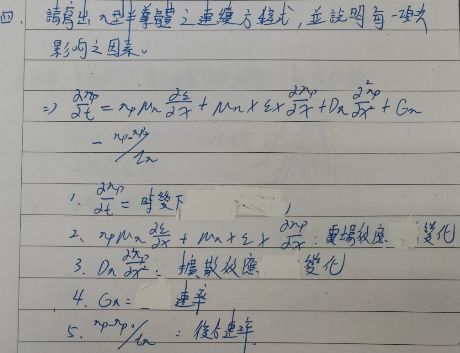 四. 請寫出 n型半導體之連續方程式，並說明每一項次
影响之因素。
⇒ ∂np/∂t = npμn ∂ε/∂x + μn × ε × ∂np/∂x + Dn ∂²np/∂x² + Gn
- np-np₀/τn
1. ∂np/∂t = 時變下
2. npμn ∂ε/∂x + μn × ε × ∂np/∂x : 電場效應 變化
3. Dn ∂²np/∂x² : 擴散效應 變化
4. Gn = 速率
5. np-np₀/τn : 復合速率